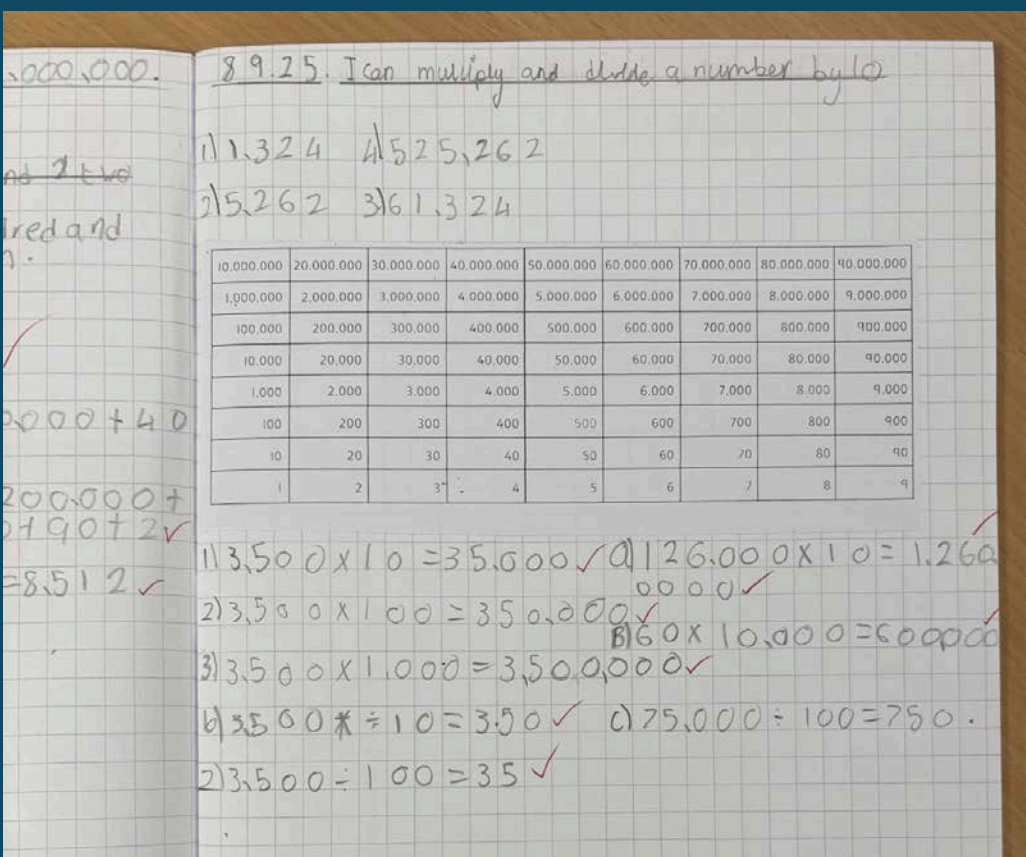 ,000,000.
red and
0,000 + 40
200,000 +
0 + 90 + 2
= 8,512
8 9.25. I can multiply and divide a number by 10
1) 1,324 4) 525,262
2) 5,262 3) 61,324
10,000,000 20,000,000 30,000,000 40,000,000 50,000,000 60,000,000 70,000,000 80,000,000 90,000,000
1,000,000 2,000,000 3,000,000 4,000,000 5,000,000 6,000,000 7,000,000 8,000,000 9,000,000
100,000 200,000 300,000 400,000 500,000 600,000 700,000 800,000 900,000
10,000 20,000 30,000 40,000 50,000 60,000 70,000 80,000 90,000
1,000 2,000 3,000 4,000 5,000 6,000 7,000 8,000 9,000
100 200 300 400 500 600 700 800 900
10 20 30 40 50 60 70 80 90
1 2 3 4 5 6 7 8 9
1) 3,500 x 10 = 35,000 a) 126,000 x 10 = 1,260
0000
2) 3,500 x 100 = 350,000
B) 60 x 10,000 = 600000
3) 3,500 x 1,000 = 3,500,000
b) 3,500 ÷ 10 = 350 c) 75,000 ÷ 100 = 750.
2) 3,500 ÷ 100 = 35